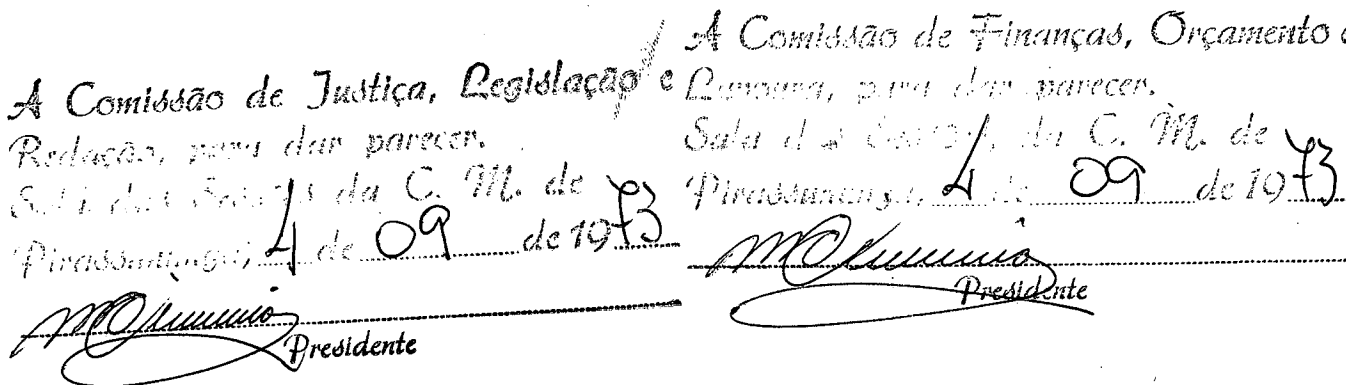 A Comissão de Justiça, Legislação e
Redação, para dar parecer.
Sala das Sessões da C. M. de
Pirassununga, 4 de 09 de 1973
Presidente
A Comissão de Finanças, Orçamento e
para dar parecer.
Sala das Sessões, da C. M. de
Pirassununga, 4 de 09 de 1973
Presidente